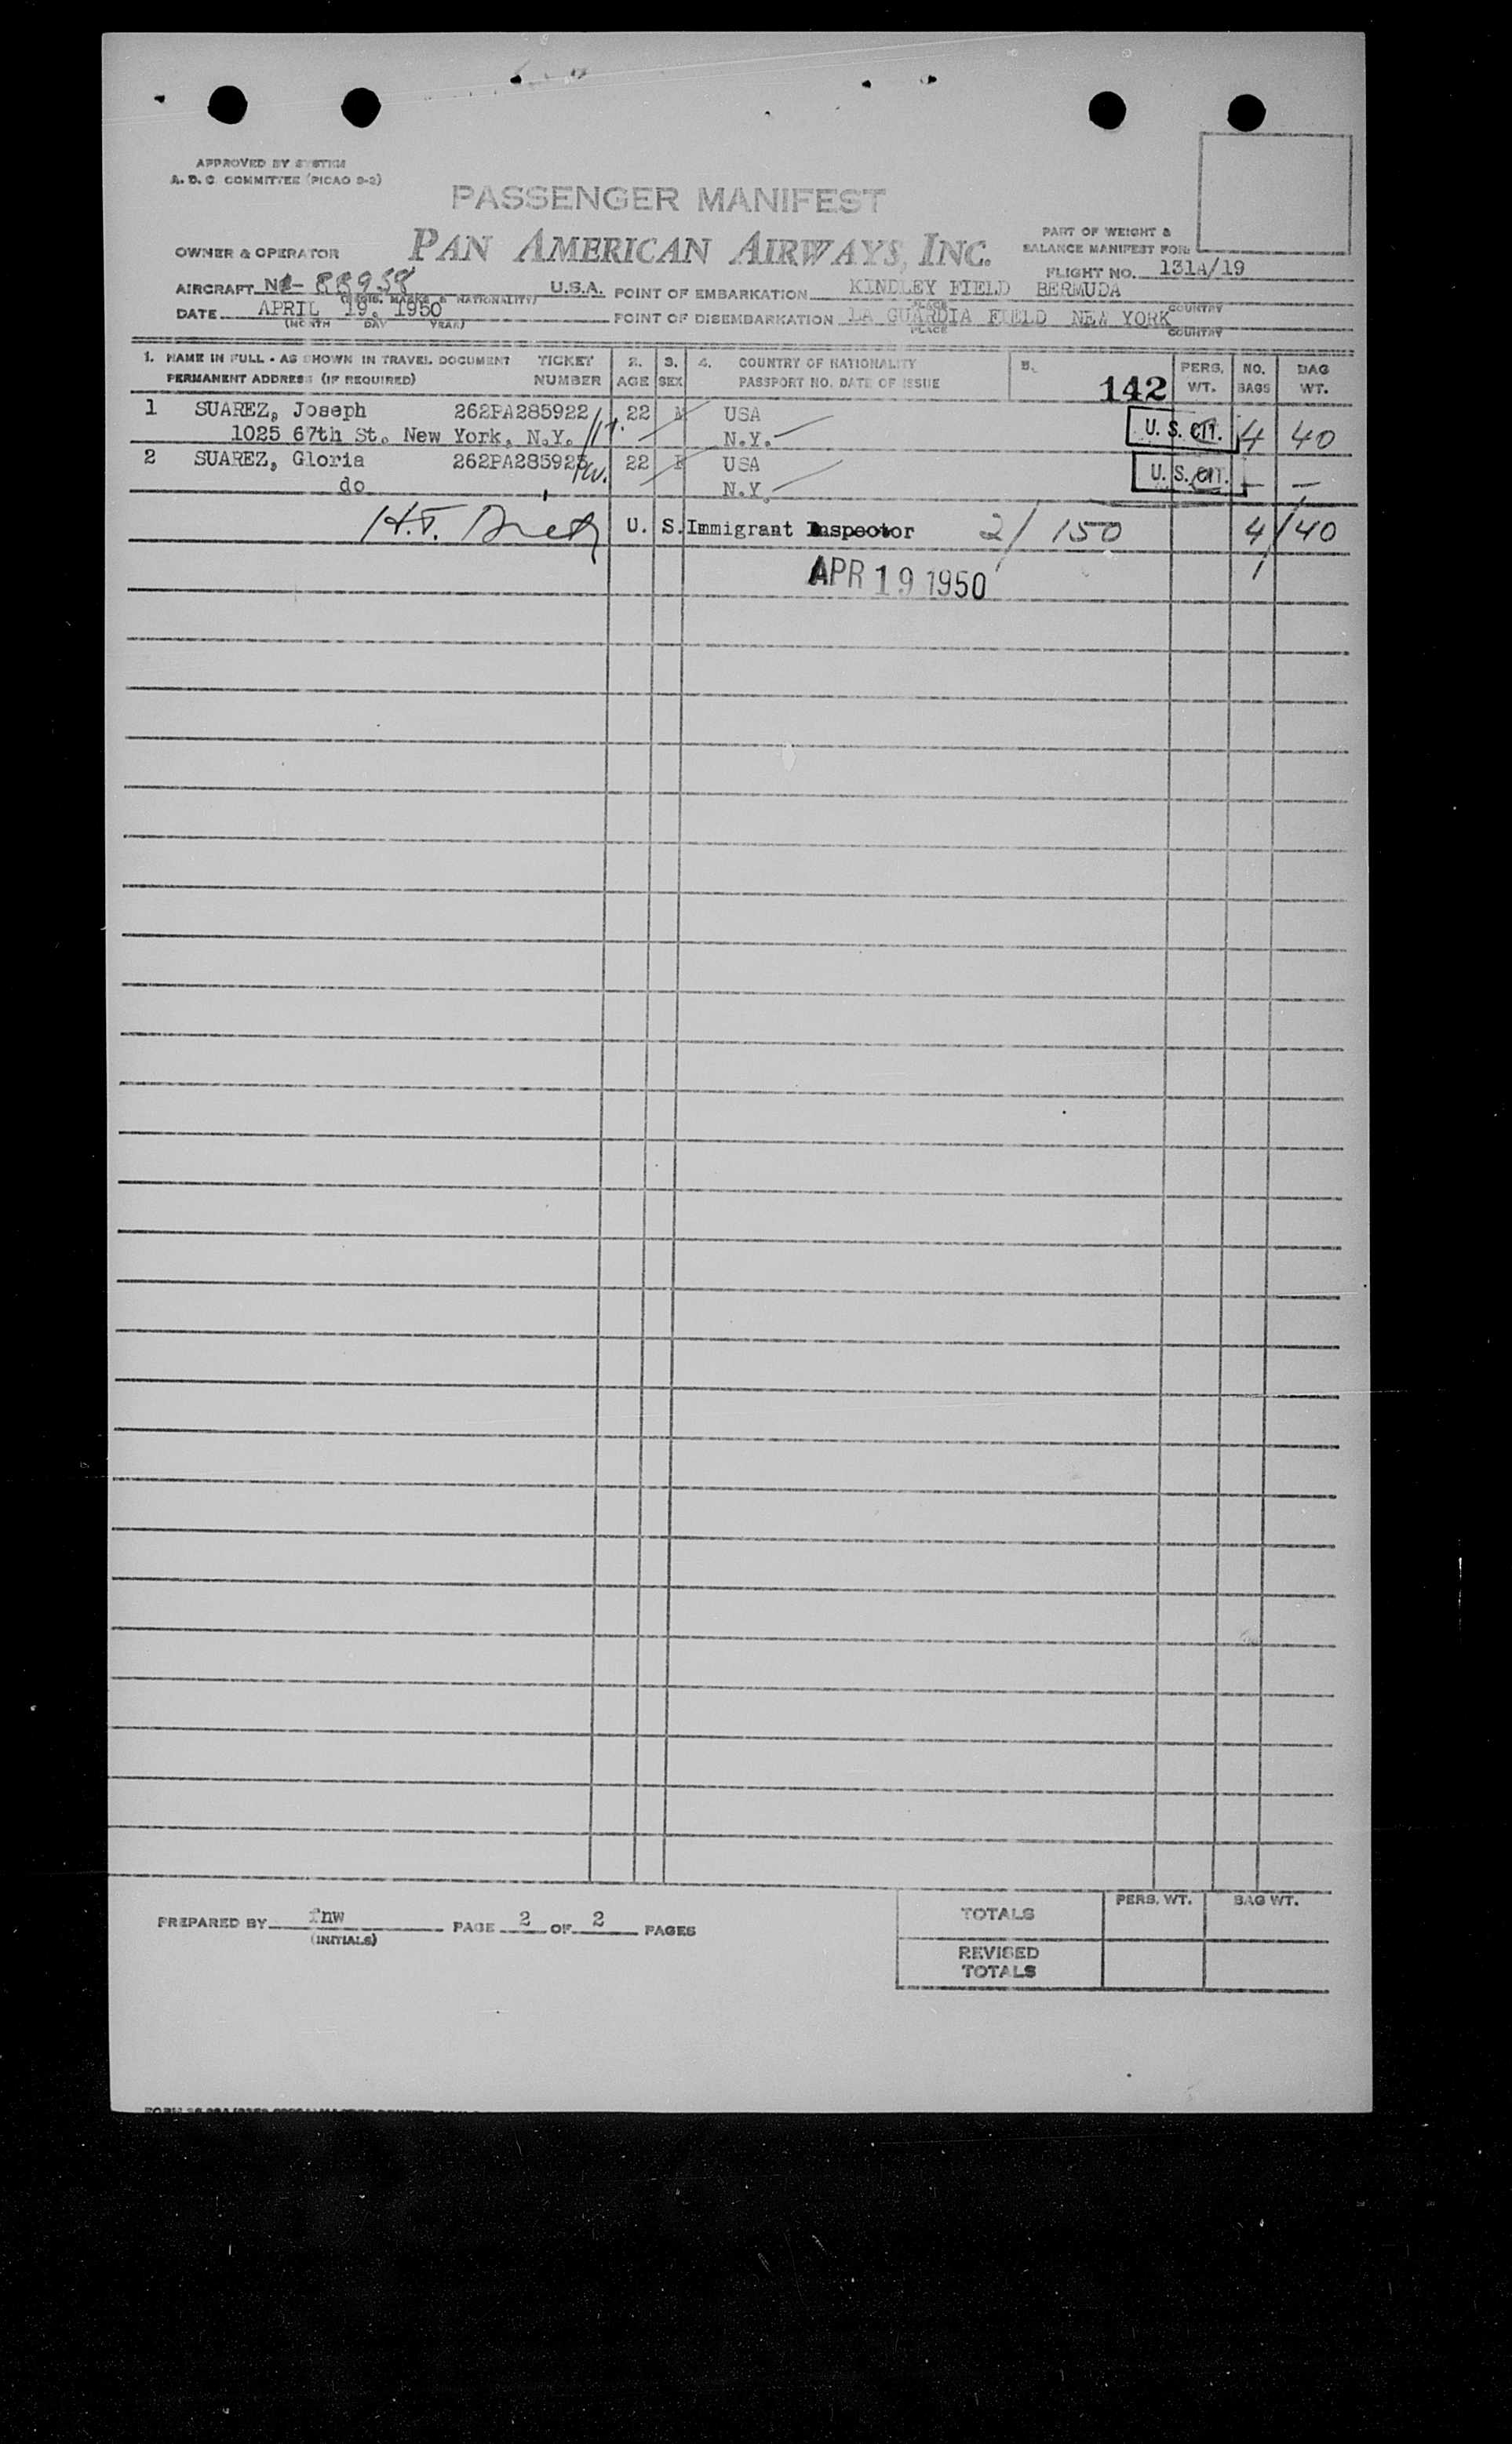 APPROVED BY SYSTEM
A. D. C. COMMITTEE (PICAO 9-2)
PASSENGER MANIFEST
PAN AMERICAN AIRWAYS, INC.
OWNER & OPERATOR
PART OF WEIGHT &
BALANCE MANIFEST FOR:
FLIGHT NO. 131A/19
AIRCRAFT 88958 U.S.A. POINT OF EMBARKATION KINDLEY FIELD BERMUDA
(REGIS. MARKS & NATIONALITY) PLACE COUNTRY
DATE APRIL 19, 1950 POINT OF DISEMBARKATION LA GUARDIA FIELD NEW YORK
(MONTH DAY YEAR) PLACE COUNTRY
1. NAME IN FULL - AS SHOWN IN TRAVEL DOCUMENT TICKET 2. 3. 4. COUNTRY OF NATIONALITY 5. PERS. NO. BAG
PERMANENT ADDRESS (IF REQUIRED) NUMBER AGE SEX PASSPORT NO. DATE OF ISSUE 142 WT. BAGS WT.
1 SUAREZ, Joseph 262PA285922 22 M USA
1025 67th St. New York, N.Y. N.Y. U. S. CIT. 4 40
2 SUAREZ, Gloria 262PA285923 22 F USA
do N.Y. U. S. CIT. — —
H.F. U. S. Immigrant Inspector 2/ 150 4/40
APR 19 1950
PREPARED BY fnw PAGE 2 OF 2 PAGES
(INITIALS)
PERS. WT. BAG WT.
TOTALS
REVISED
TOTALS